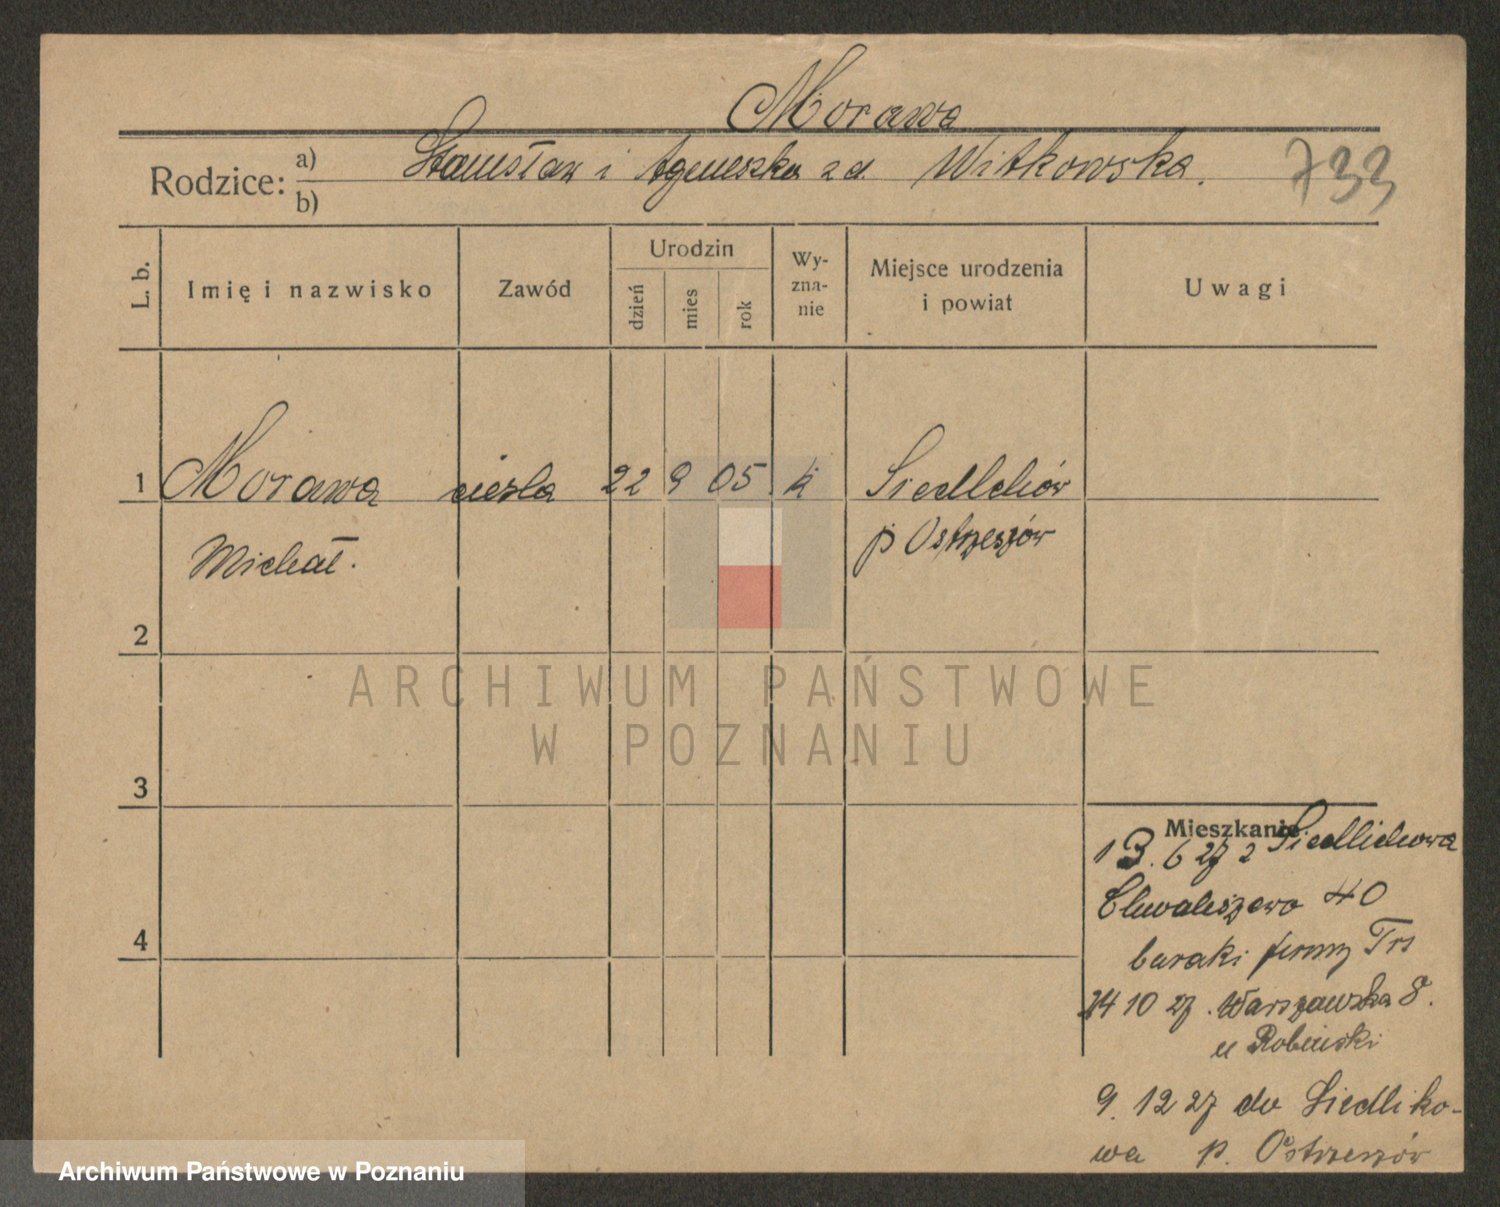 Morawa
Rodzice: a) Stanisław i Agnieszka zd Witkowska.
b)
733
L. b.
Imię i nazwisko
Zawód
Urodzin
dzień
mies
rok
Wy-
zna-
nie
Miejsce urodzenia
i powiat
Uwagi
1 Morawa cieśla 22 9 05 k Siedlchów
Michał. p Ostrzeszów
2
ARCHIWUM PAŃSTWOWE
W POZNANIU
3
Mieszkanie
13. 6 27 z Siedlichowa
Chwaliszewo 40
baraki firmy Tri
24 10 27. Warszawska 8.
u Robiński
9. 12 27 do Siedliko-
wa p. Ostrzeszów
4
Archiwum Państwowe w Poznaniu